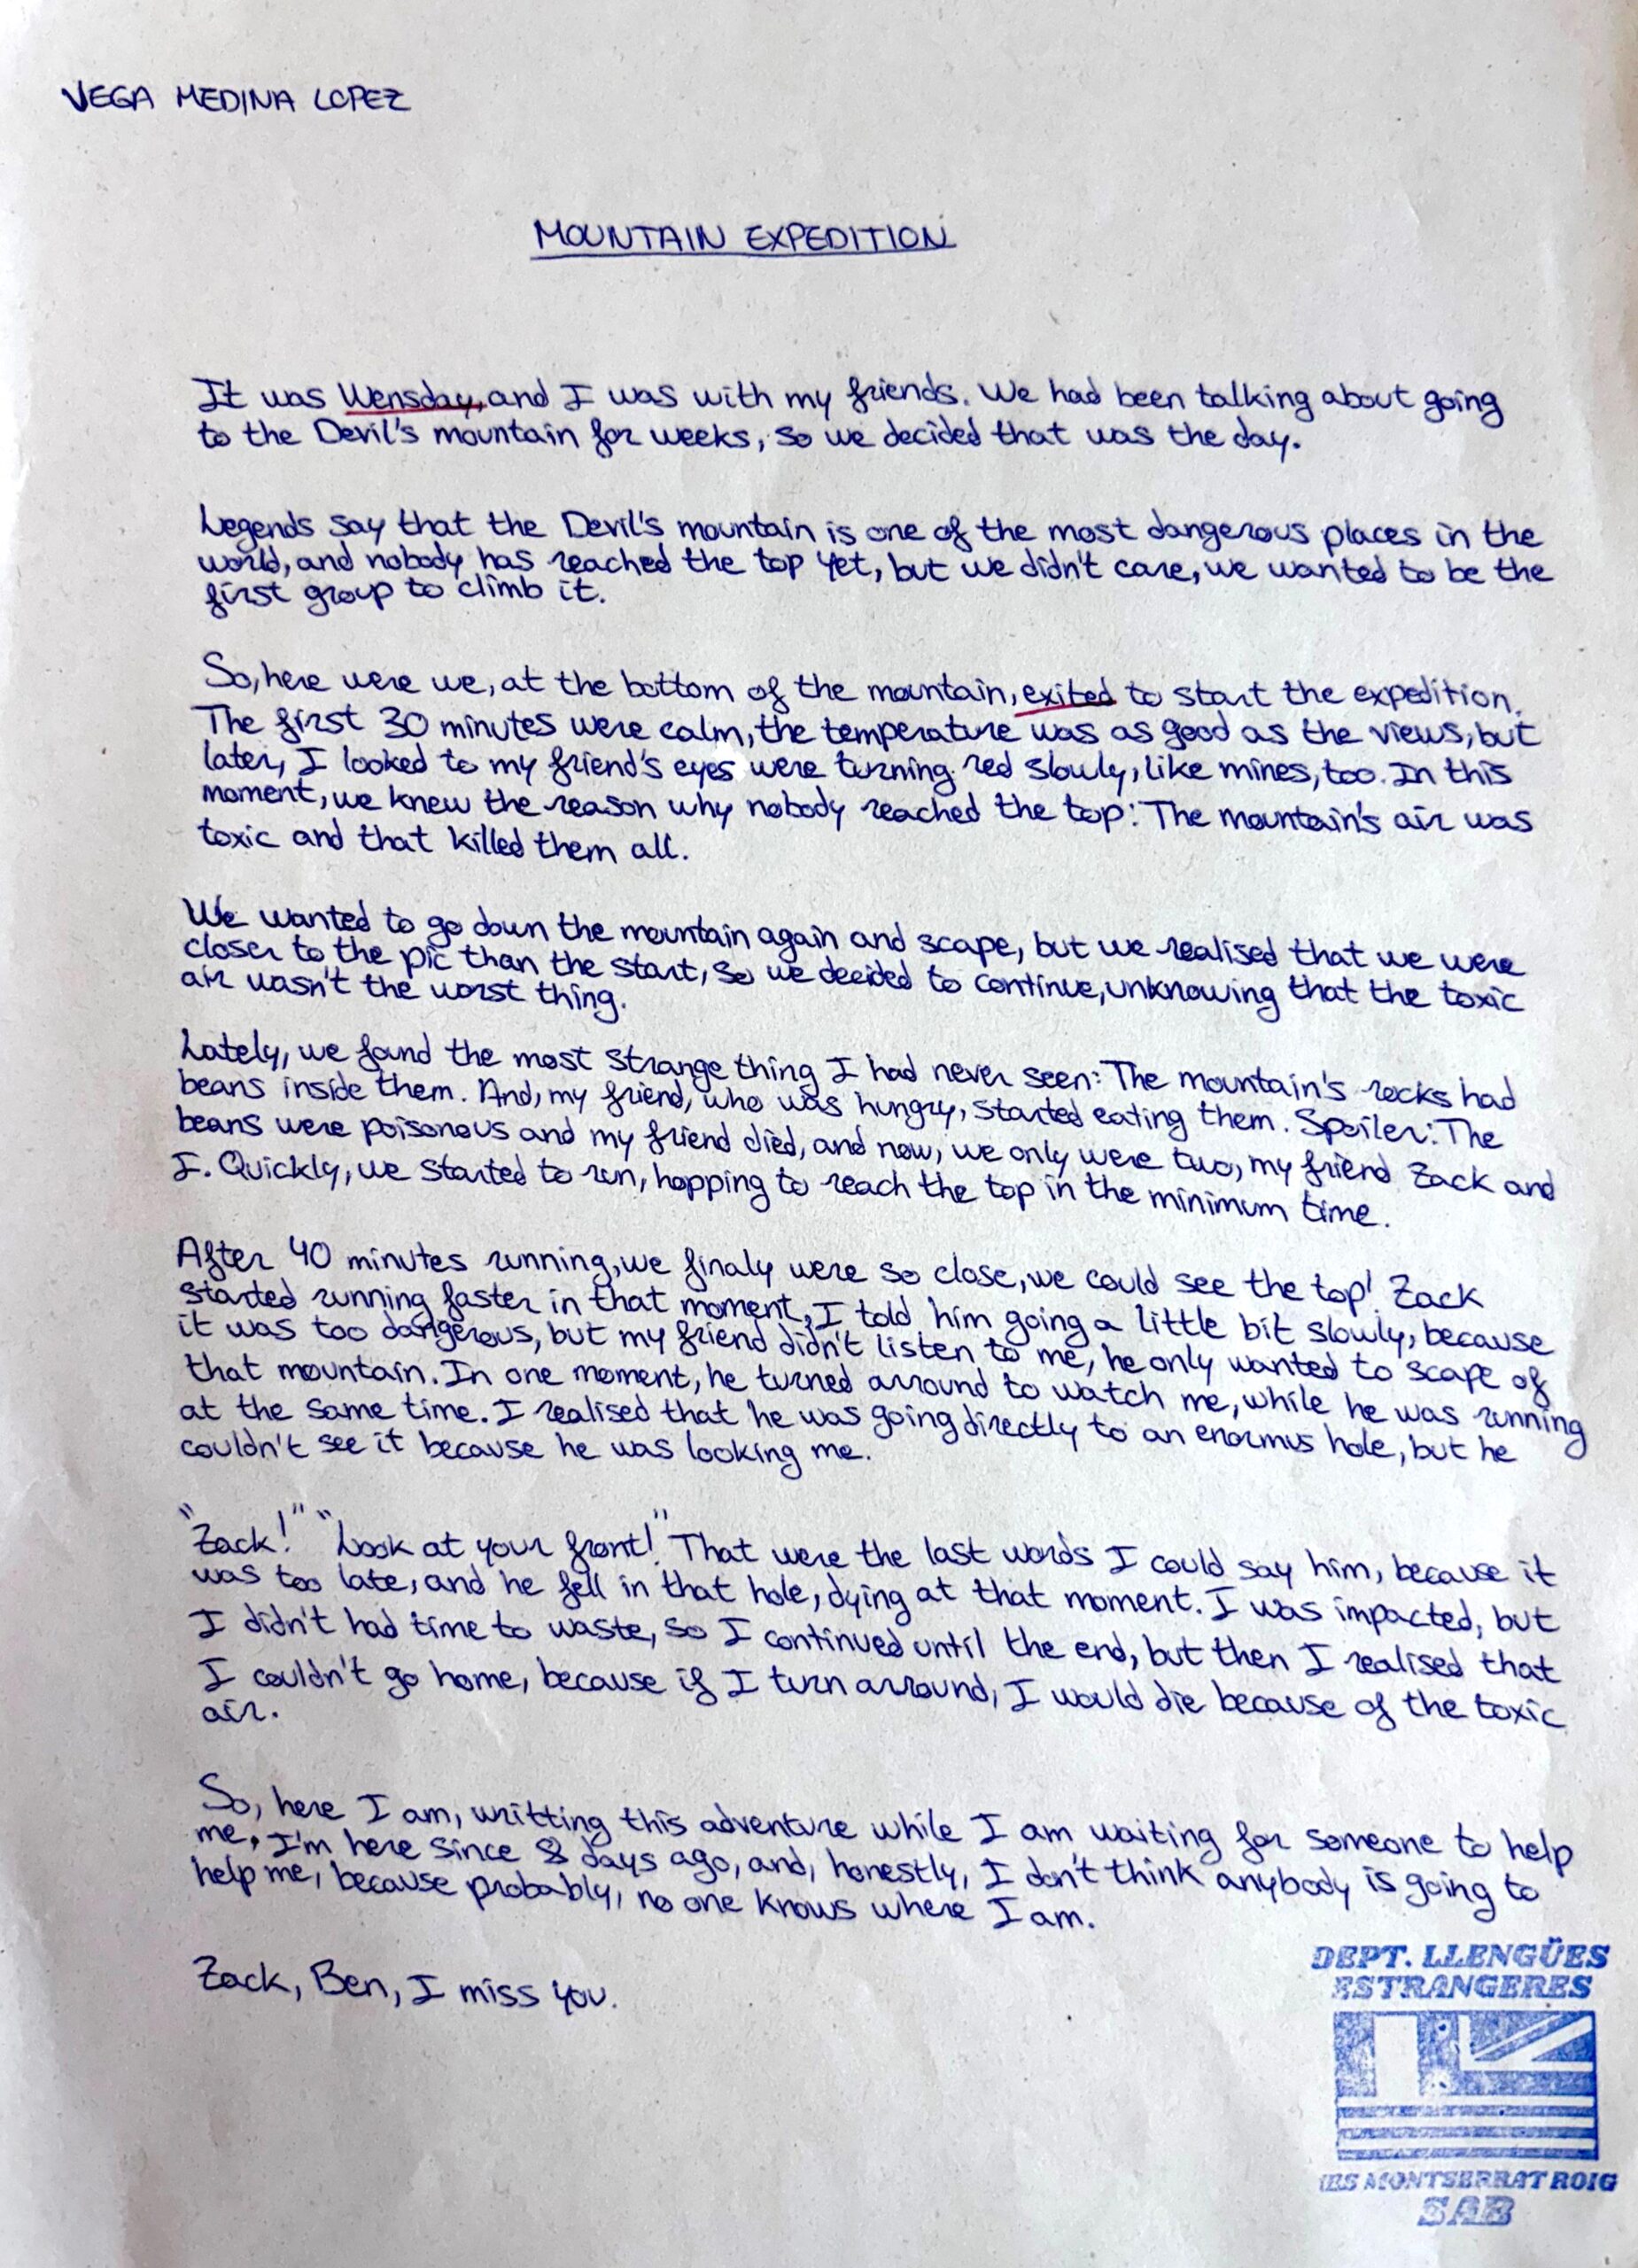 VEGA MEDINA LOPEZ
MOUNTAIN EXPEDITION
It was Wensday, and I was with my friends. We had been talking about going
to the Devil's mountain for weeks, so we decided that was the day.
Legends say that the Devil's mountain is one of the most dangerous places in the
world, and nobody has reached the top yet, but we didn't care, we wanted to be the
first group to climb it.
So, here were we, at the bottom of the mountain, exited to start the expedition.
The first 30 minutes were calm, the temperature was as good as the views, but
later, I looked to my friend's eyes were turning red slowly, like mines, too. In this
moment, we knew the reason why nobody reached the top: The mountain's air was
toxic and that killed them all.
We wanted to go down the mountain again and scape, but we realised that we were
closer to the pic than the start, so we decided to continue, unknowing that the toxic
air wasn't the worst thing.
Lately, we found the most strange thing I had never seen: The mountain's rocks had
beans inside them. And, my friend, who was hungry, started eating them. Spoiler: The
beans were poisonous and my friend died, and now, we only were two, my friend Zack and
I. Quickly, we started to run, hopping to reach the top in the minimum time.
After 40 minutes running, we finaly were so close, we could see the top! Zack
started running faster in that moment, I told him going a little bit slowly, because
it was too dangerous, but my friend didn't listen to me, he only wanted to scape of
that mountain. In one moment, he turned arround to watch me, while he was running
at the same time. I realised that he was going directly to an enormus hole, but he
couldn't see it because he was looking me.
"Zack!" "Look at your front!" That were the last words I could say him, because it
was too late, and he fell in that hole, dying at that moment. I was impacted, but
I didn't had time to waste, so I continued until the end, but then I realised that
I couldn't go home, because if I turn arround, I would die because of the toxic
air.
So, here I am, writting this adventure while I am waiting for someone to help
me, I'm here since 8 days ago, and, honestly, I don't think anybody is going to
help me, because probably, no one knows where I am.
Zack, Ben, I miss you.
DEPT. LLENGÜES
ESTRANGERES
IES MONTSERRAT ROIG
SAB